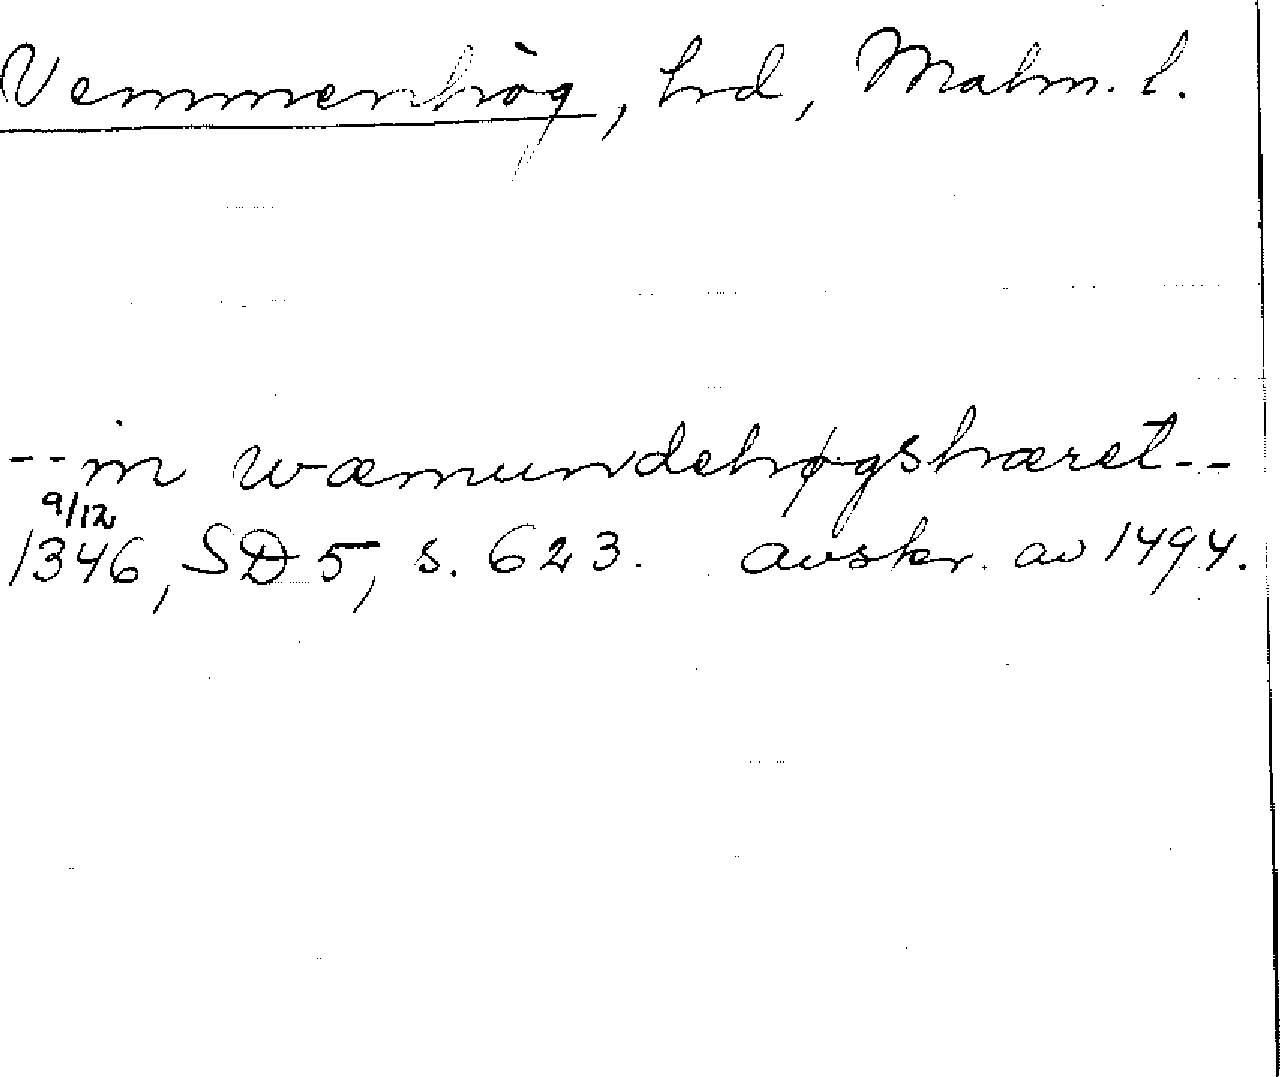 Vemmenhög, hrd, Malm. l.
-- in wæmundehøgshæret --
9/12
1346, SD 5, s. 623. avskr. av 1494.